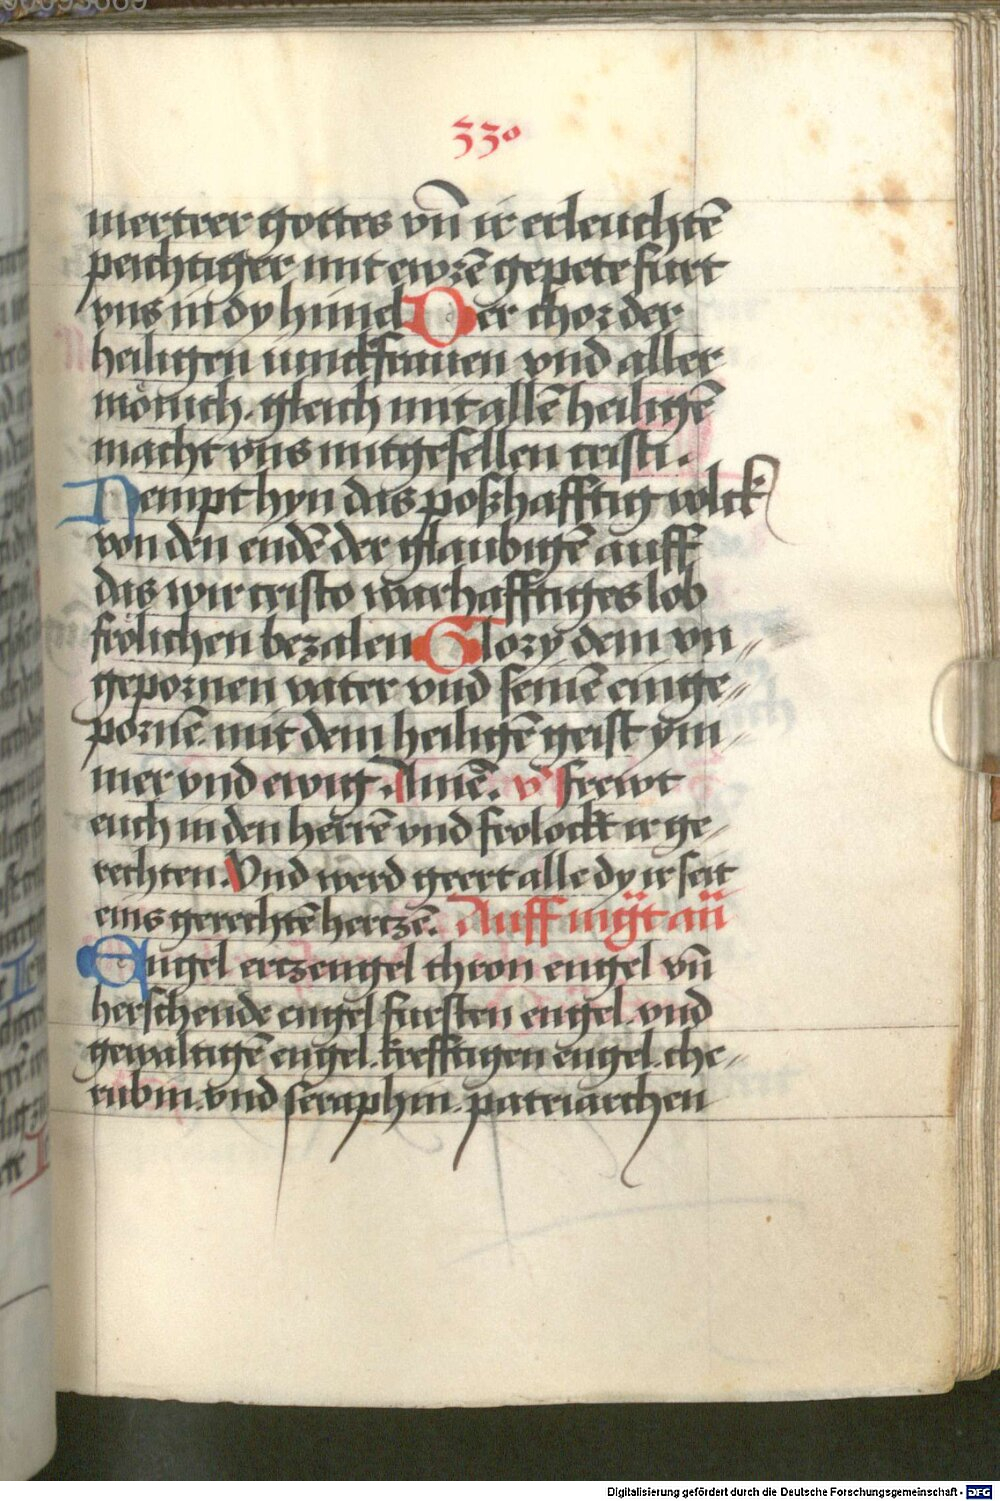 330
mertrer gottes vn̄ ir erleuchtē
peichtiger mit ewrē gepete furt
vns in dy himel Der chor der
heiligen iunckfrauen vnd aller
mönich. gleich mit allē heiligē
macht vns mitgesellen cristi.
Nempt hyn das poßhafftig volck
von den endē der glaubigē auff
das wir cristo warhafftiges lob
frölichen bezalen Glory dem vn
gepornen vater vnd seinē einge
pornē. mit dem heiligē geist ym
mer vnd ewig. Amē. v̄ frewt
euch in den herrē vnd frolockt ir ge
rechten. Vnd werd geert alle dy ir seit
eins gerechtē hertzē. Auff
Engel ertzengel thron engel vn̄
herschende engel fursten engel. vnd
gewaltigē engel. krefftigen engel. che
rubin. vnd seraphin. patriarchen
Digitalisierung gefördert durch die Deutsche Forschungsgemeinschaft - DFG